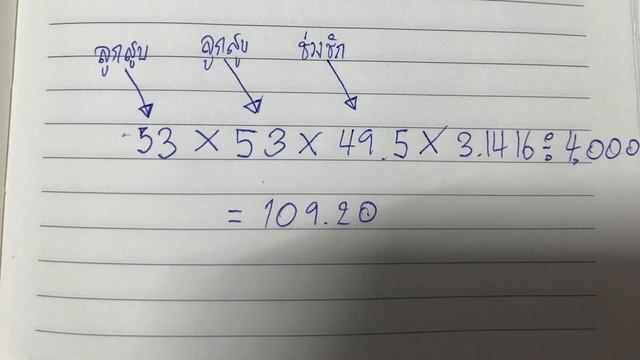 ลูกสูบ ลูกสูบ ช่วงชัก
53 × 53 × 49.5 × 3.1416 ÷ 4,000
= 109.20